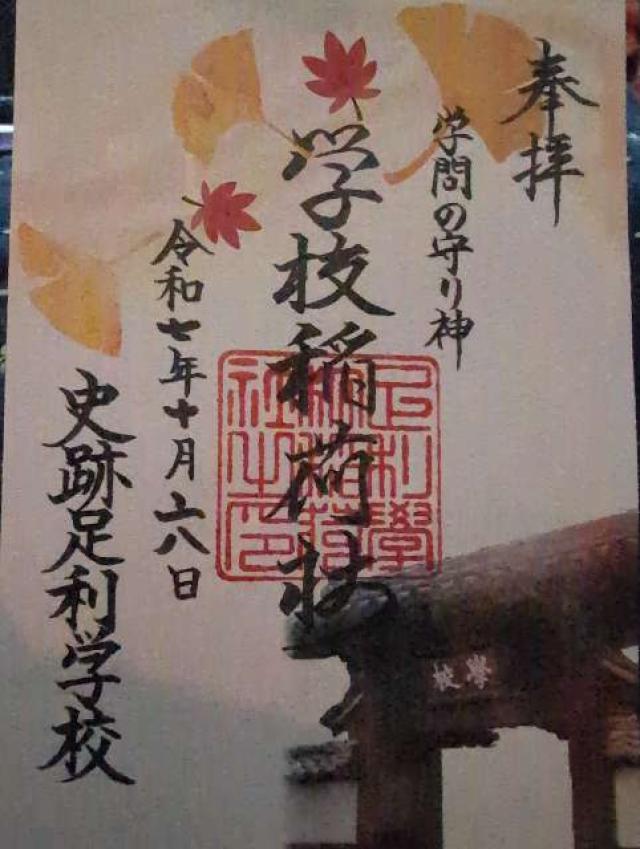 奉拝
学問の守り神
学校稲荷社
令和七年十月二八日
史跡足利学校
足利學
校稲荷
社之印
學校